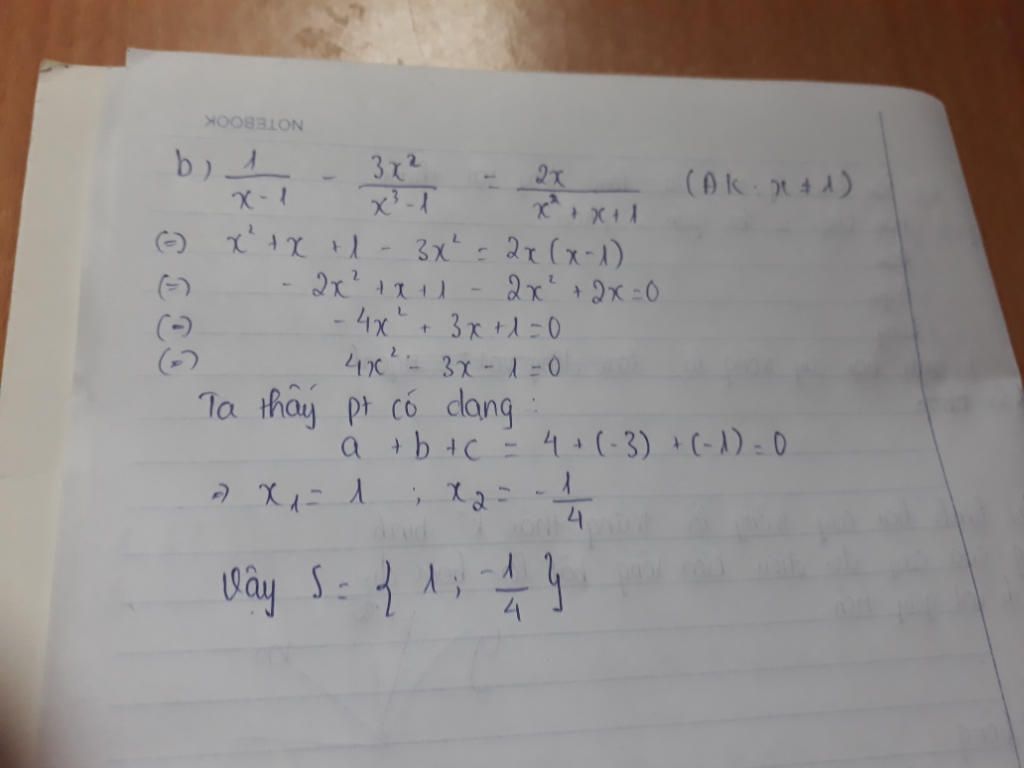 NOTEBOOK
b) 1/(x-1) - 3x²/(x³-1) = 2x/(x²+x+1) (ĐK: x ≠ 1)
(=) x² + x + 1 - 3x² = 2x(x-1)
(=) - 2x² + x + 1 - 2x² + 2x = 0
(=) - 4x² + 3x + 1 = 0
(=) 4x² - 3x - 1 = 0
Ta thấy pt có dang :
a + b + c = 4 + (-3) + (-1) = 0
=> x₁ = 1 ; x₂ = -1/4
Vậy S = { 1 ; -1/4 }